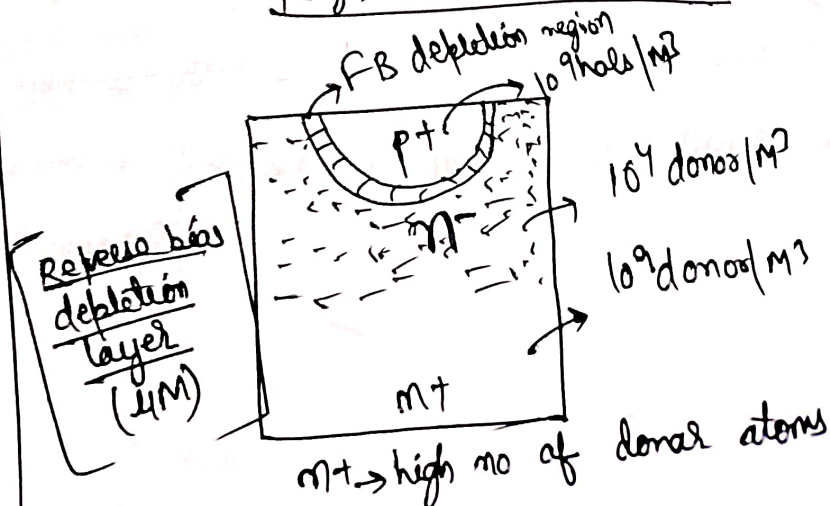 FB depletion region
10⁹ hols/M³
p+
10⁴ donor/M³
n⁻
10⁹ donor/M³
Reverse bias
depletion
layer
(μM)
n+
n+ → high no of donar atoms